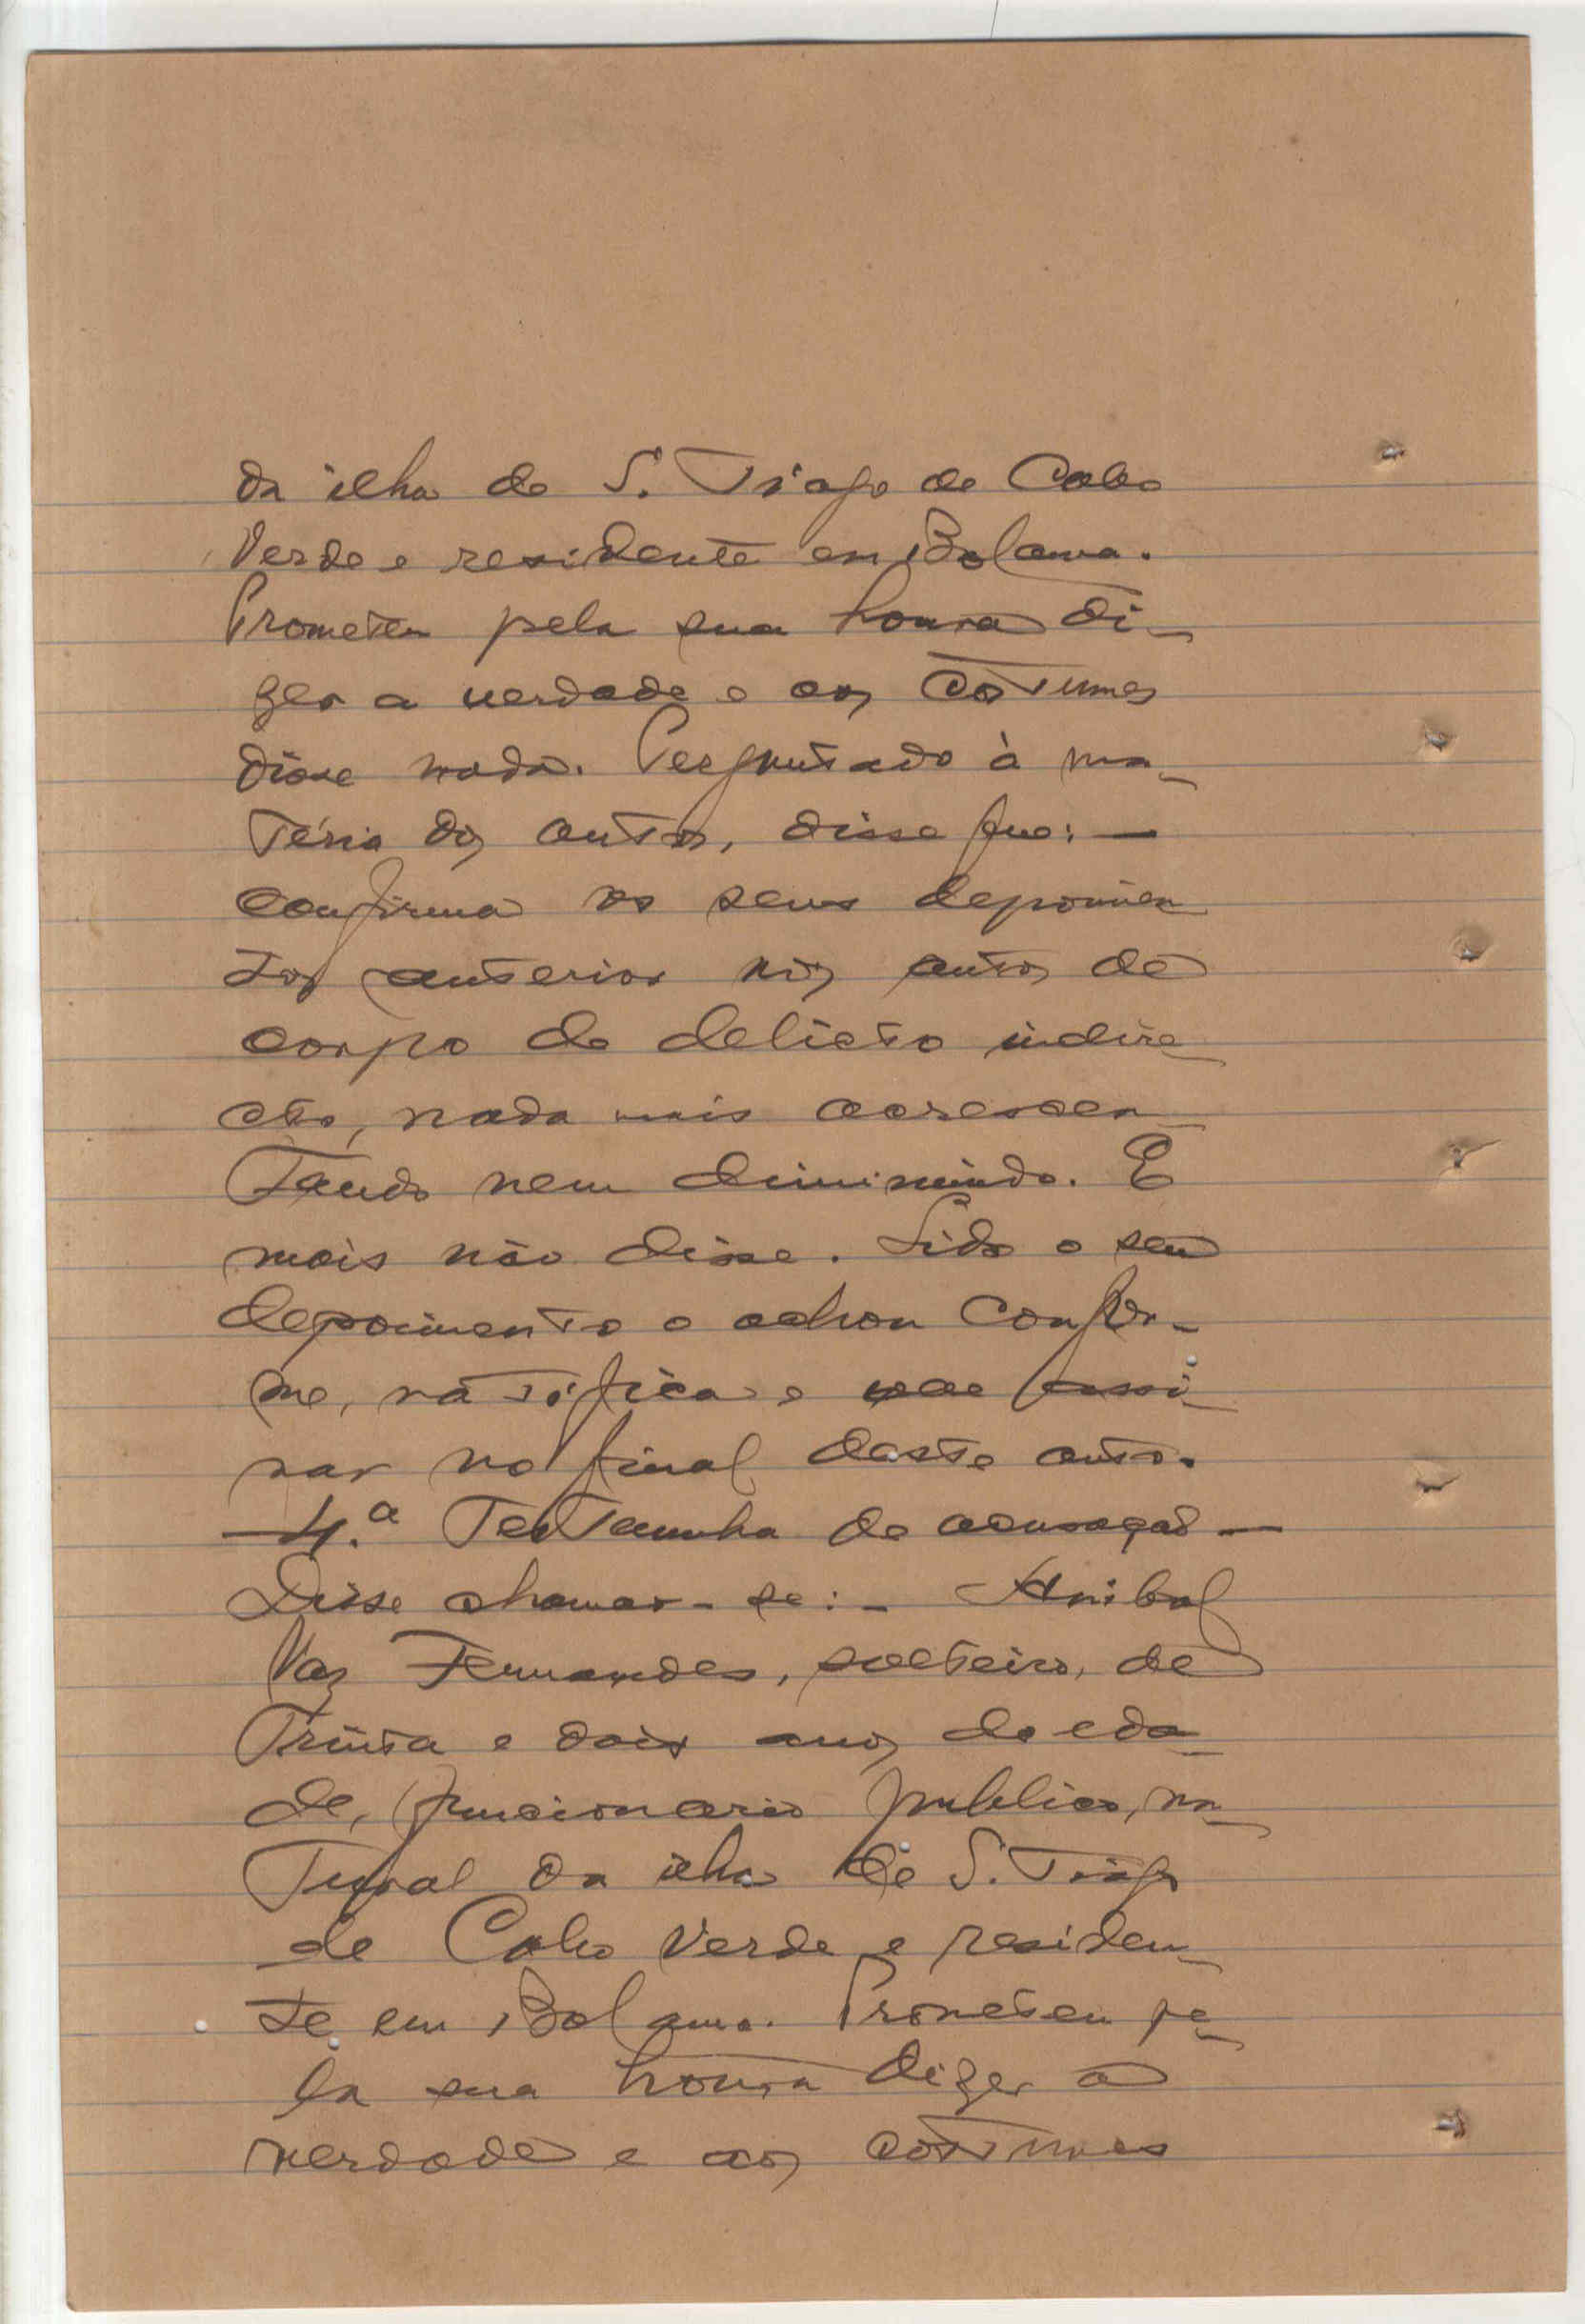 da ilha de S. Tiago de Cabo
Verde e residente em Bolama.
Prometeu pela sua honra di-
zer a verdade e aos costumes
disse nada. Perguntado à ma-
téria dos autos, disse que: —
confirma os seus depoimen
tos anterior nos autos de
corpo de delicto indire-
cto, nada mais acrescen-
tando nem diminuindo. E
mais não disse. Lido o seu
depoimento o achou confor-
me, ratifica e vae assi-
nar no final deste auto.
—4.ª Testemunha de acusação—
Disse chamar-se:- Anibal
Vaz Fernandes, solteiro, de
trinta e dois anos de eda-
de, funcionario publico, na-
tural da ilha de S. Tiago
de Cabo Verde e residen-
te em Bolama. Prometeu pe-
la sua honra dizer a
verdade e aos costumes